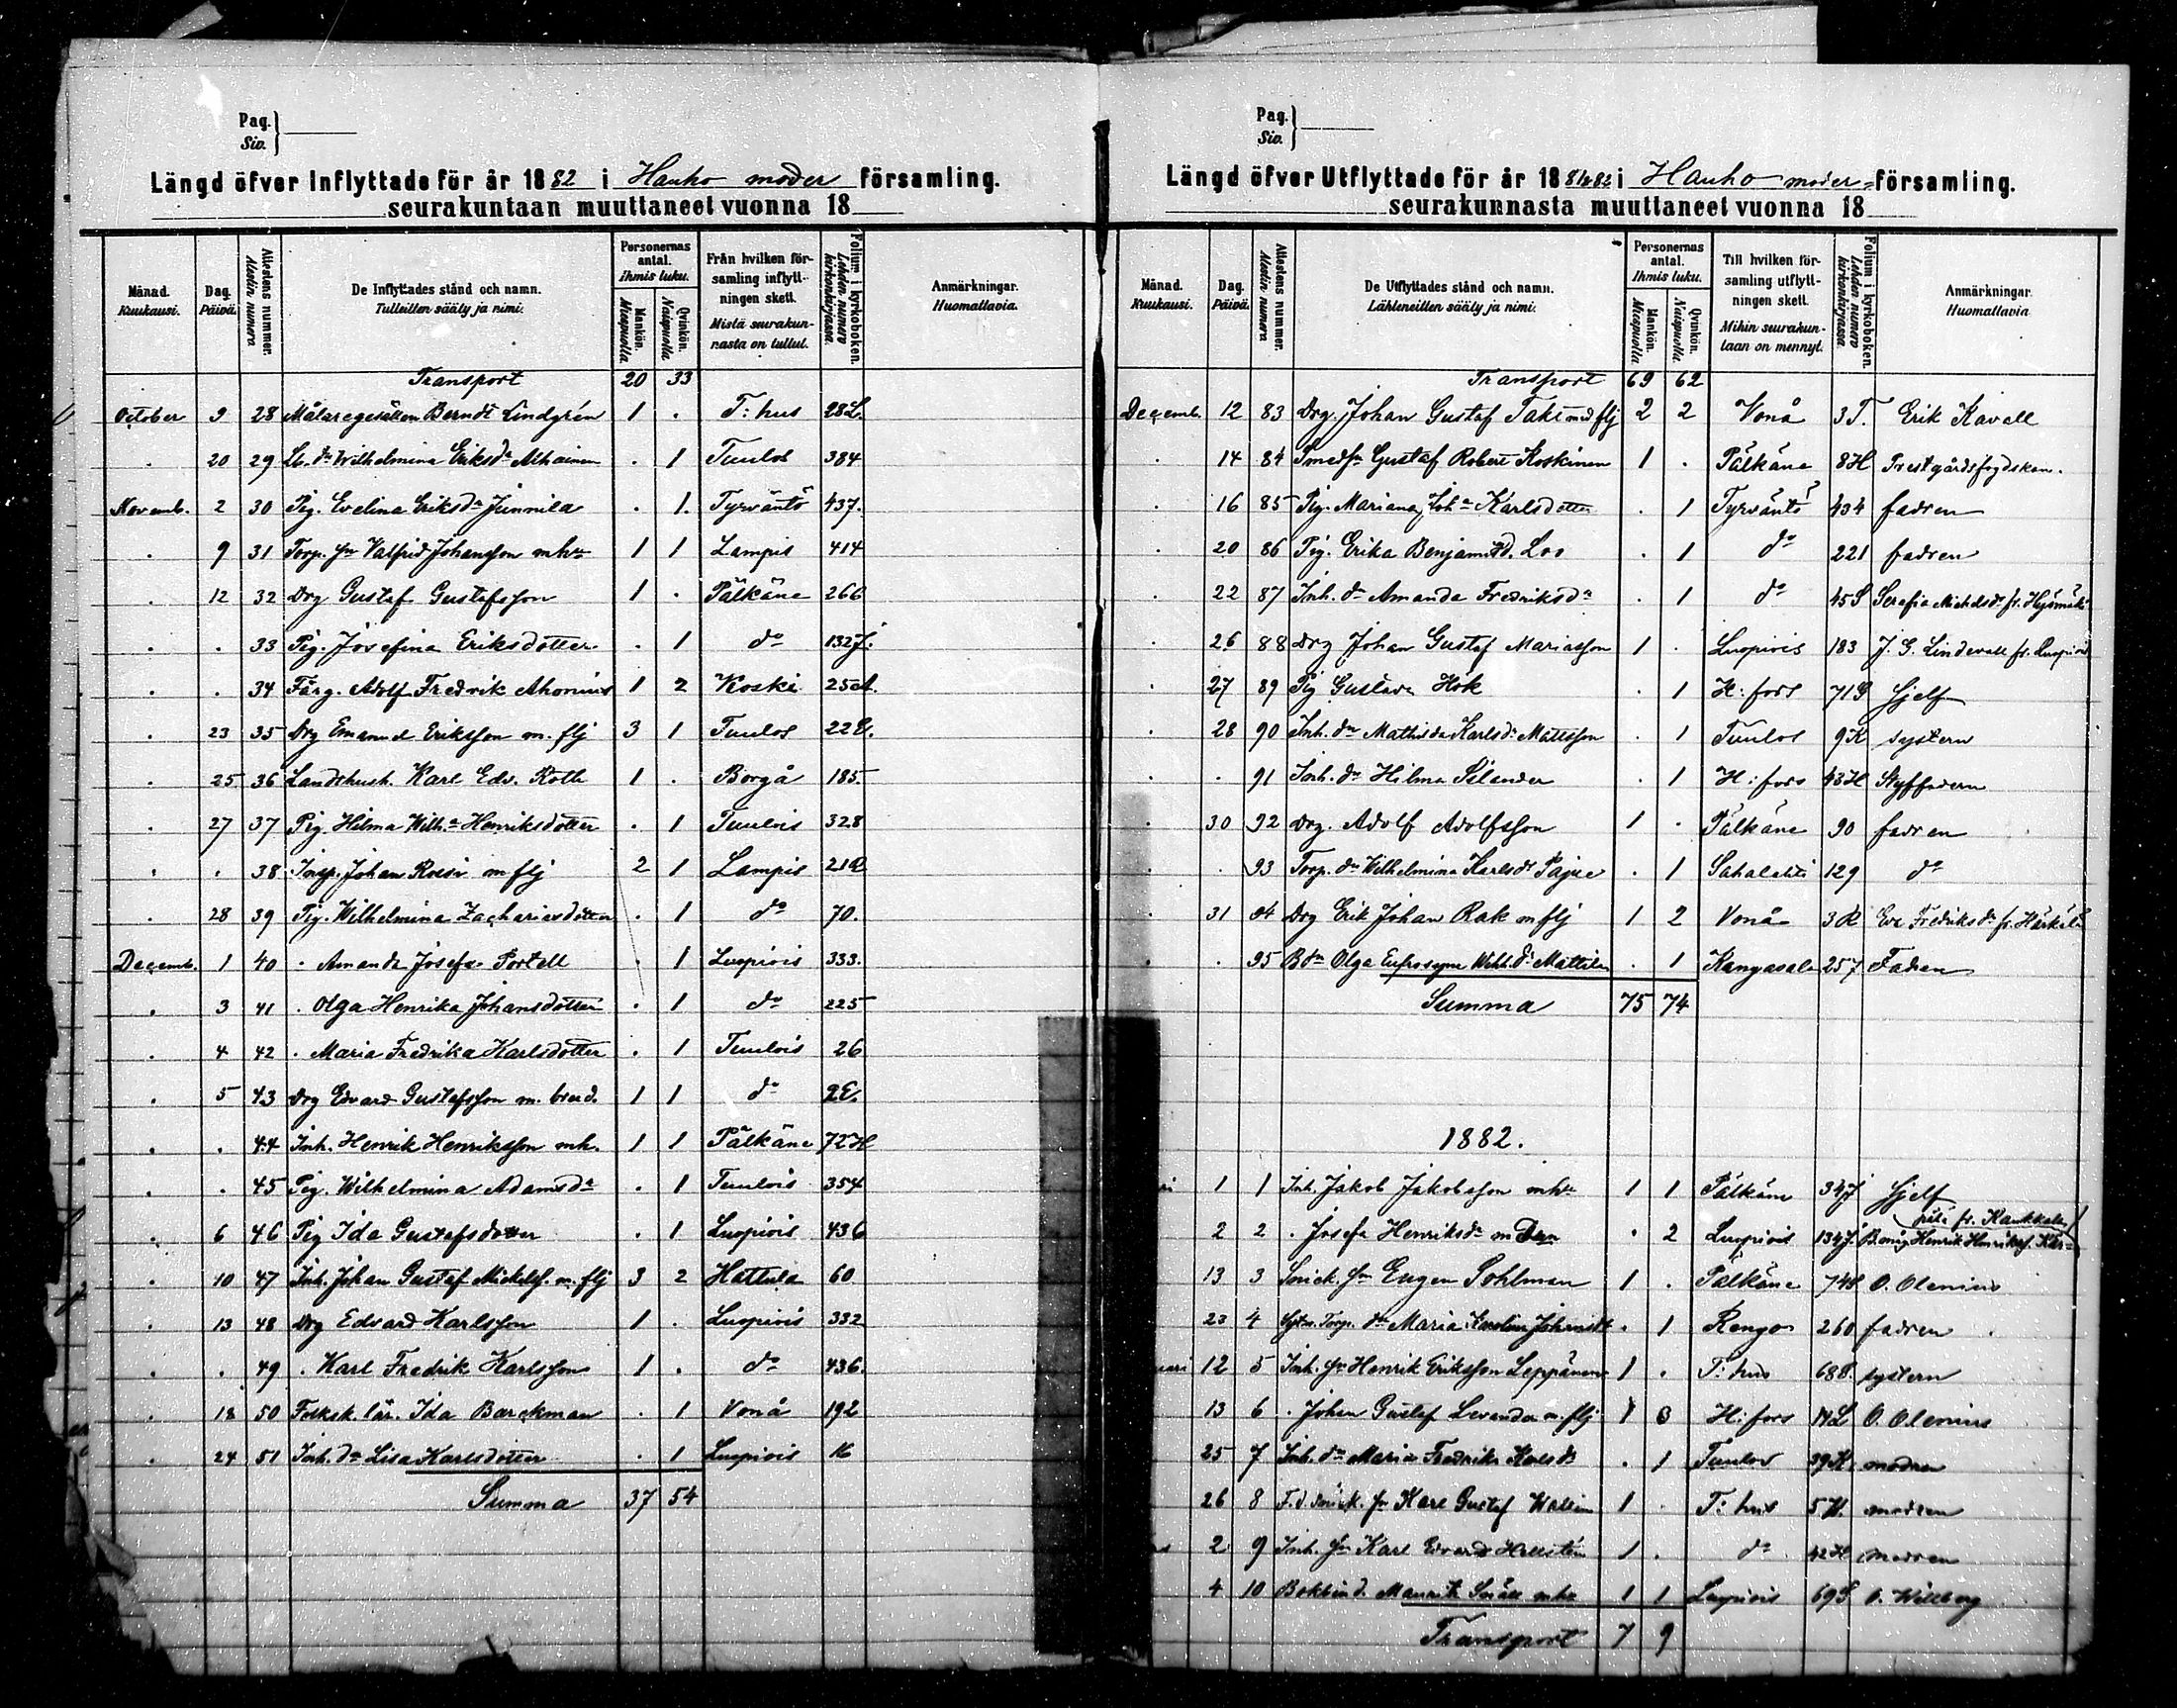 Pag.
Siv.
Längd öfver Inflyttade för år 1882 i Hauho moder församling.
seurakuntaan muuttaneet vuonna 18
Månad. Kuukausi. Dag. Päivä. Attestens nummer. Alestin numero De Inflyttades stånd och namn. Tulleitten sääty ja nimi. Personernas antal. Ihmis luku. Mankön. Miespuolia Qvinkön. Naispuolia. Från hvilken församling inflyttningen skett. Mistä seurakunnasta on tullut. Folium i kyrkoboken. Lehden numero kirkonkirjassa. Anmärkningar. Huomattavia.
Transport 20 33
October 9 28 Målaregesällen Berndt Lindgrén 1 . T:hus 28L.
. 20 29 Wilhelmina Eriksdr . 1 Tuulos 384
Novemb. 2 30 Pig. Evelina Eriksdr Junnila . 1. Tyrväntö 437.
. 9 31 Torp. sn Valfrid Johansson mhu 1 1 Lampis 414
. 12 32 Drg Gustaf Gustafsson 1 . Pälkäne 266
. . 33 Pig. Josefina Eriksdotter . 1 do 132J.
. . 34 Färg. Adolf Fredrik Ahonius 1 2 Koski 25A.
. 23 35 Drg Emanuel Eriksson m. flj 3 1 Tuulos 22E.
. 25 36 Landthush. Karl Edv. Roth 1 . Borgå 185.
. 27 37 Pig Hilma Wilh.a Henriksdotter . 1 Tuulois 328
. . 38 Insp. Johan m flj 2 1 Lampis
. 28 39 Pig. Wilhelmina Zachariasdotter . 1 do 70.
Decemb. 1 40 . Amanda Josefa Portell . 1 Luopiois 333.
. 3 41 . Olga Henrika Johansdotter . 1 do 225
. 4 42 . Maria Fredrika Karlsdotter . 1 Tuulois 26
. 5 43 Drg Edvard Gustafsson m. brud. 1 1 do 2E.
. . 44 Inh. Henrik Henriksson mh. 1 1 Pälkäne 72H
. . 45 Pig. Wilhelmina Adamsdr . 1 Tuulois 354
. 6 46 Pig Ida Gustafsdotter . 1 Luopiois 436
. 10 47 Inh. Johan Gustaf Mickelss. m. flj 3 2 Hattula 60
. 13 48 Drg Edvard Karlsson 1 . Luopiois 332
. . 49 . Karl Fredrik Karlsson 1 . do 436.
. 18 50 Folksk. lär. Ida Barckman . 1 Vonå 192
. 24 51 Inh. dr Lisa Karlsdotter . 1 Luopiois 16
Summa 37 54
Pag.
Siv.
Längd öfver Utflyttade för år 1881&82 i Hauho moder-församling.
seurakunnasta muuttaneet vuonna 18
Månad. Kuukausi. Dag. Päivä. Attestens nummer. Alestin numero De Utflyttades stånd och namn. Lähteneitten sääty ja nimi. Personernas antal. Ihmis luku. Mankön. Miespuolia Qvinkön. Naispuolia. Till hvilken församling utflyttningen skett. Mihin seurakuntaan on mennyt. Folium i kyrkoboken. Lehden numero kirkonkirjassa. Anmärkningar. Huomattavia
Transport 69 62
Decemb. 12 83 Drg. Johan Gustaf Taki med flj 2 2 Vonå 3T. Erik Kavall
. 14 84 Smedsn Gustaf Robert Koskinen 1 . Pälkäne 8H Prestgårdsfogdskan.
. 16 85 Pig. Mariana Joha Karlsdotter . 1 Tyrväntö 434 fadren
. 20 86 Pig. Erika Benjaminsd. Loo . 1 do 221 fadren
. 22 87 Inh. dr Amanda Fredriksdr . 1 do 45S Serafia Michelsdr fr.
. 26 88 Drg Johan Gustaf Mariasson 1 . Luopiois 183 J. G. Lindevall fr. Luopiois
. 27 89 Pig Gustava Hök . 1 H:fors 71G sjelf
. 28 90 Inh. dr Mathilda Karlsdr Mattsson . 1 Tuulos 9K systern
. . 91 Inh. dr Hilma Silander . 1 H:fors 43H Styffadern
. 30 92 Drg. Adolf Adolfsson 1 . Pälkäne 90 fadren
. . 93 Torp. dr Wilhelmina Karlsdr Pajue . 1 Sahalahti 129 do
. 31 94 Drg Erik Johan Rak m flj 1 2 Vonå 3R Eva Fredriksdr fr. Härkälä
. . 95 Bdr Olga Eufrosyne Wilh.dr Mattila . 1 Kangasala 257 Fadren
Summa 75 74
1882.
1 1 Inh. Jakob Jakobsson mhu 1 1 Pälkäne 34J sjelf
2 2 . Josefa Henriksdr m Dtr . 2 Luopiois 134J. Henrik Henrikss.
13 3 Snick. sn Eugen Pohlman 1 . Pälkäne 74S O. Olenius
23 4 Torp. dr Maria Karolina . 1 Rengo 260 fadren
12 5 Inh. sn Henrik Eriksson Leppänen 1 . T:hus 68P. systern
13 6 . Johan Gustaf Levander m. flj 1 3 H:fors O. Olenius
25 7 Inh. dr Maria Fredrika Karlsdr . 1 Tuulos 39K. modren
26 8 F.d. snick. sn Karl Gustaf Wallin 1 . T:hus 5H. modren
2 9 Inh. sn Karl Edvard Hellsten 1 . do 42H modren
4 10 Bokbind. Maurits Snäll mhu 1 1 Luopiois 69S O. Willberg
Transport 7 9